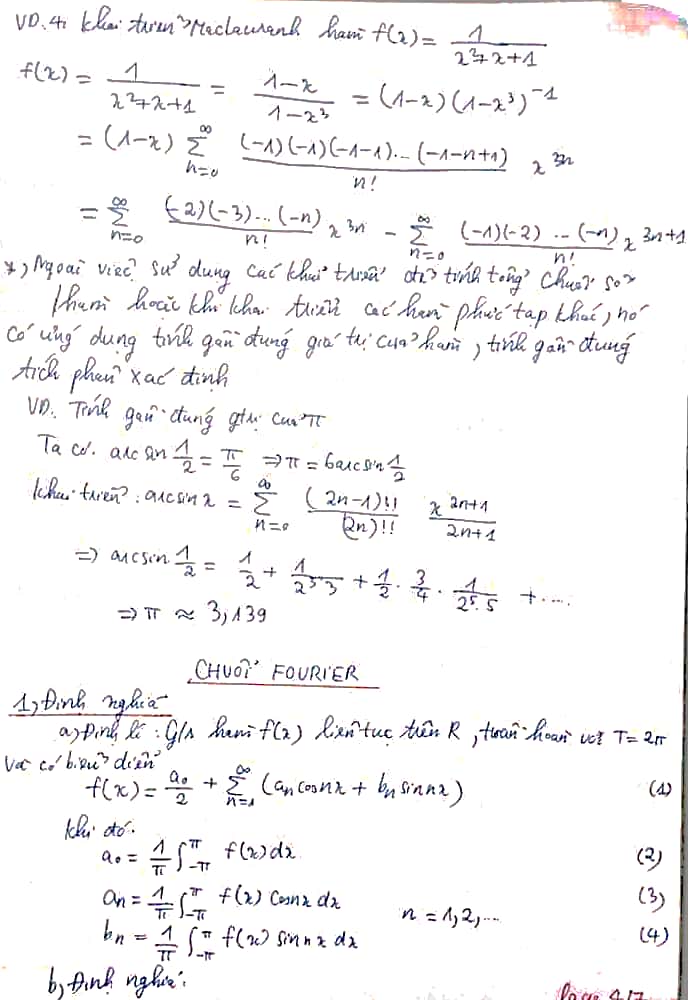 VD.4: Khai triển Maclauranh hàm f(x) = 1/(x²+x+1)
f(x) = 1/(x²+x+1) = (1-x)/(1-x³) = (1-x)(1-x³)^{-1}
= (1-x) ∑_{n=0}^{∞} (-1)(-1)(-1-1)...(-1-n+1)/n! x^{3n}
= ∑_{n=0}^{∞} (-2)(-3)...(-n)/n! x^{3n} - ∑_{n=0}^{∞} (-1)(-2)...(-n)/n! x^{3n+1}
*, Ngoài việc sử dụng các khai triển để tính tổng chuỗi số,
hàm hoặc khi khai triển các hàm phức tạp khác, nó
có ứng dụng tính gần đúng giá trị của hàm, tính gần đúng
tích phân xác định
VD. Tính gần đúng gtrị của π
Ta có. arcsin 1/2 = π/6 ⇒ π = 6arcsin 1/2
Khai triển: arcsinx = ∑_{n=0}^{∞} (2n-1)!!/(2n)!! x^{2n+1}/(2n+1)
⇒ arcsin 1/2 = 1/2 + 1/(2³3) + 1/2 . 3/4 . 1/(2⁵.5) + ....
⇒ π ≈ 3,139
CHUỖI FOURIER
1, Định nghĩa
a, Định lí: G/s hàm f(x) liên tục trên R, tuần hoàn với T = 2π
và có biểu diễn
f(x) = a₀/2 + ∑_{n=1}^{∞} (aₙcosnx + bₙsinnx) (1)
Khi đó.
a₀ = 1/π ∫_{-π}^{π} f(x)dx (2)
aₙ = 1/π ∫_{-π}^{π} f(x) cosnx dx (3)
n = 1,2,...
bₙ = 1/π ∫_{-π}^{π} f(x) sinnx dx (4)
b, Định nghĩa: